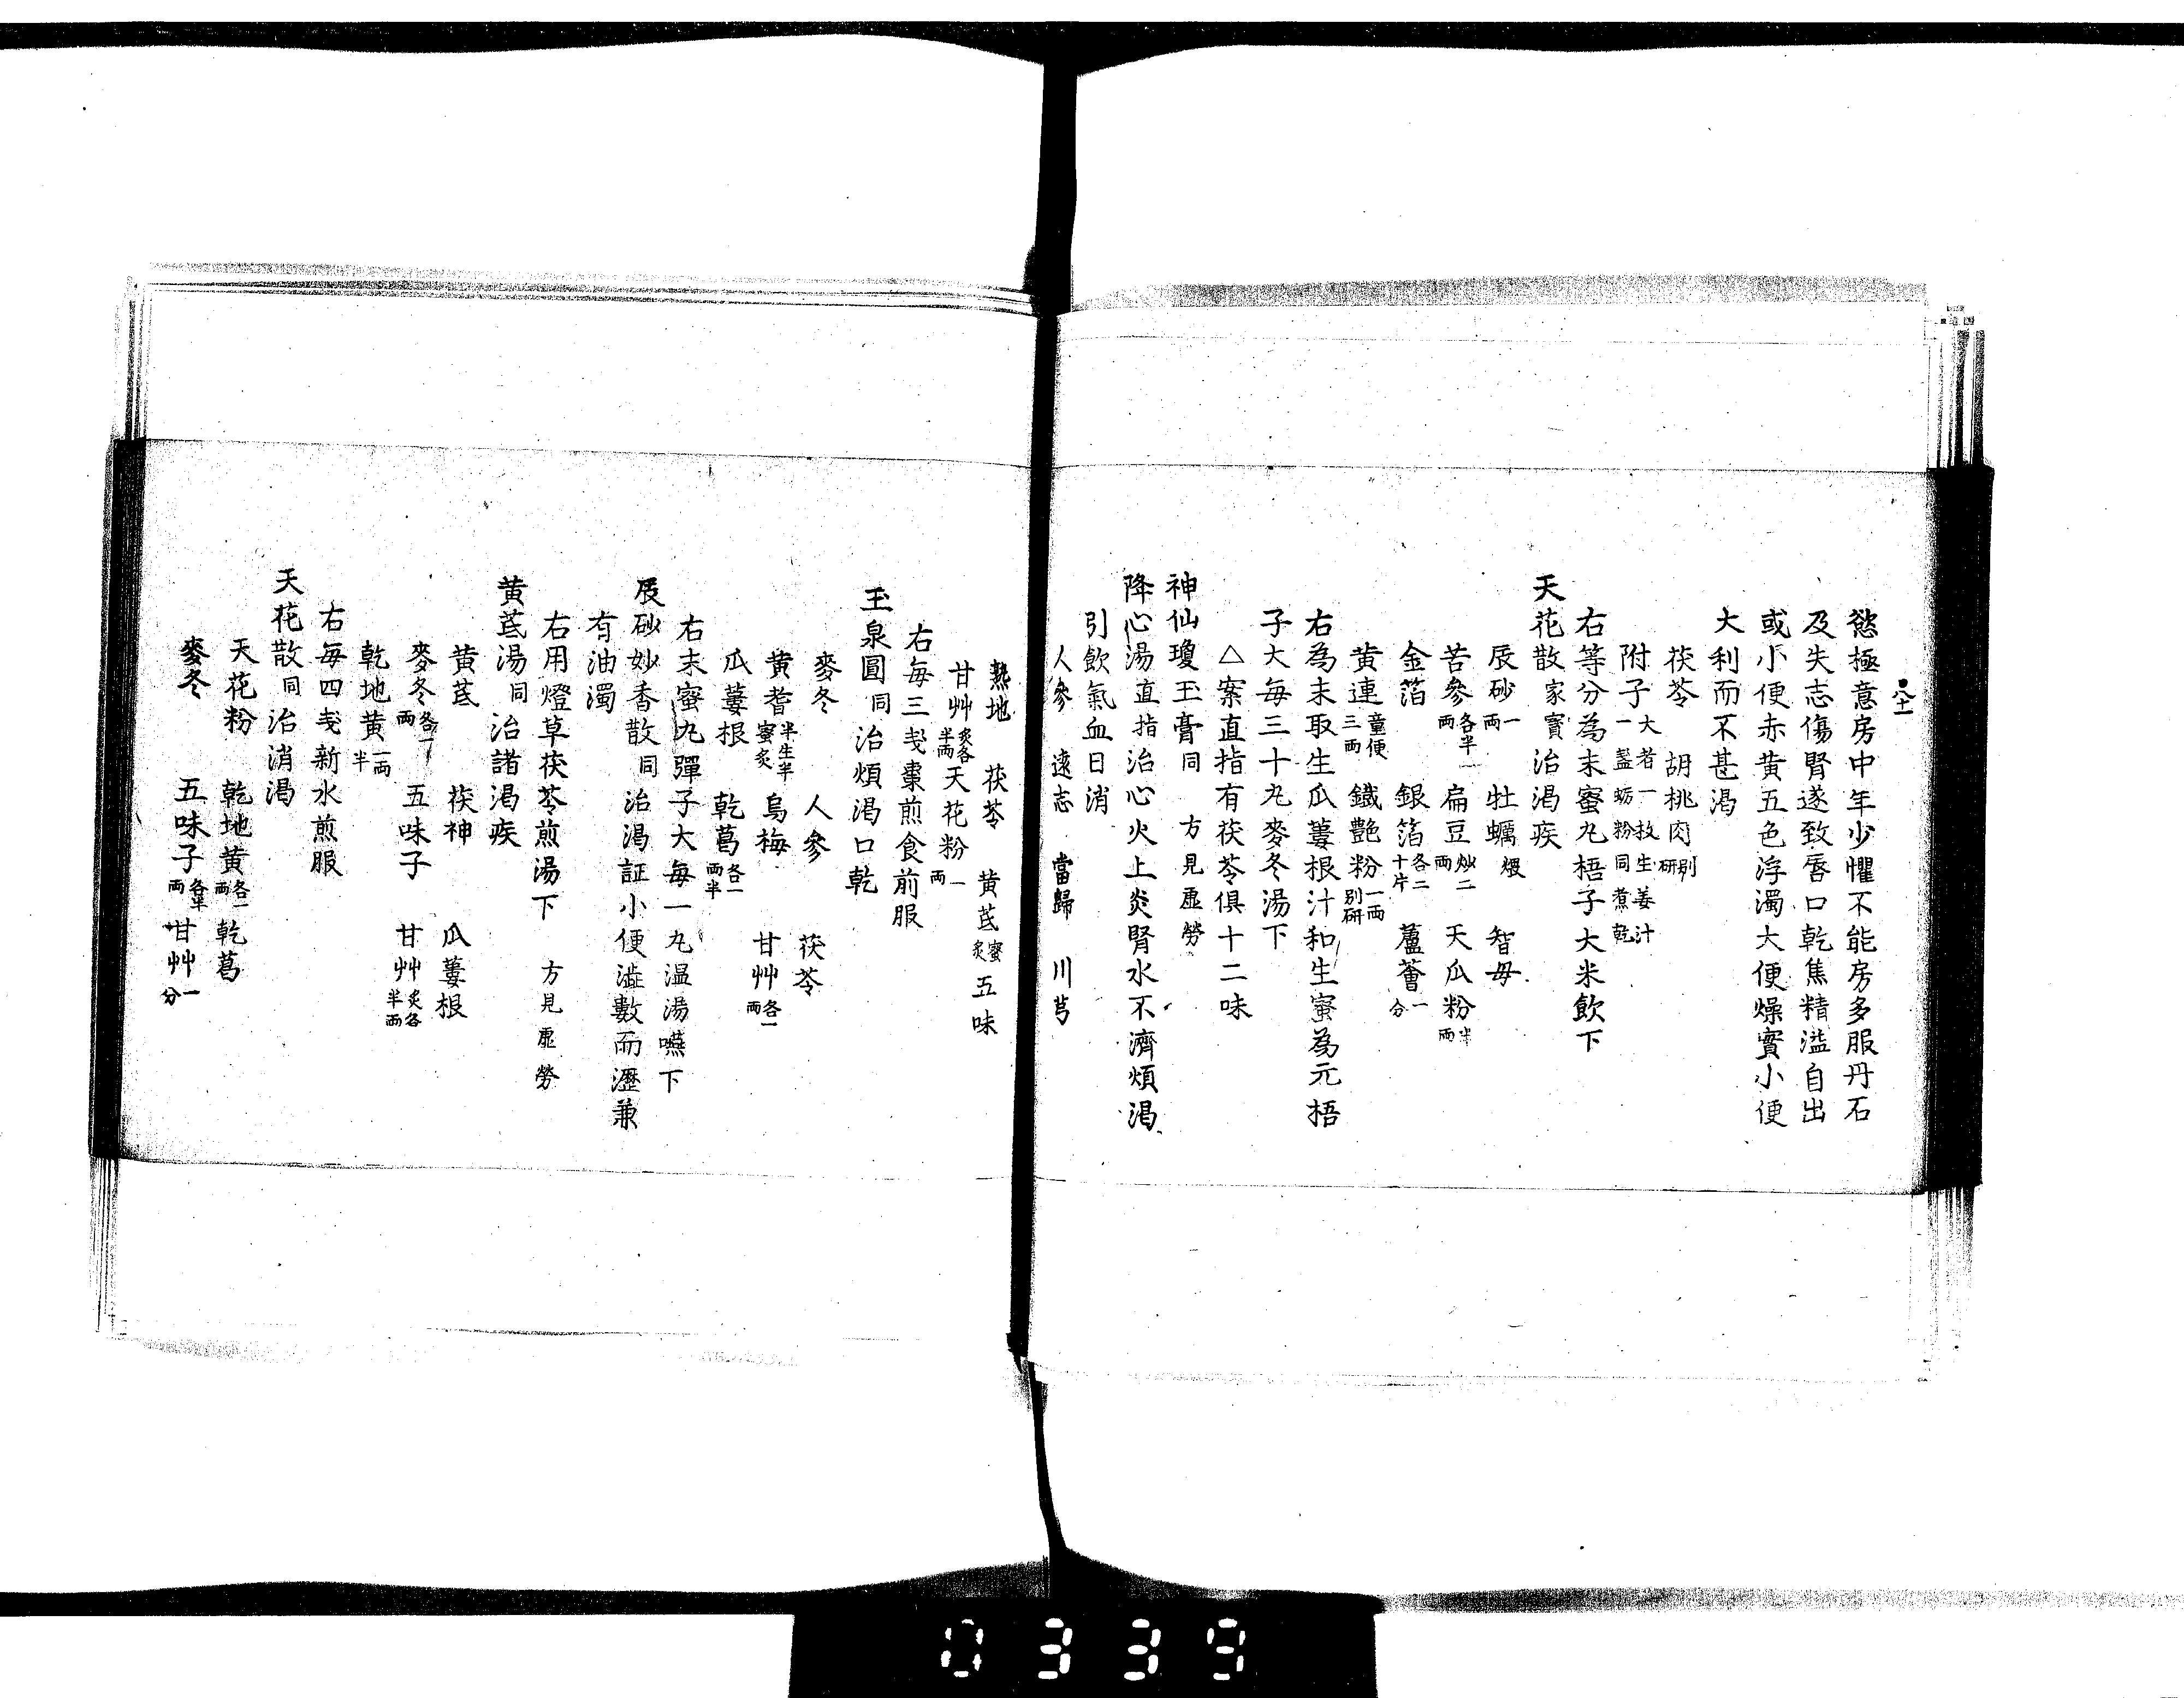 八十一
慾極意房中年少懼不能房多服丹石
及失志傷腎遂致唇口乾焦精溢自出
或小便赤黄五色浮濁大便燥實小便
大利而不甚渇
茯苓 胡桃肉別研
附子大者一枚生姜汁一盞蛎粉同煮乾
右等分為末蜜丸梧子大米飲下
天花散家寳治渇疾
辰砂一兩 牡蠣煨 智母
苦參各半兩 扁豆炒二兩 天瓜粉半兩
金箔 銀箔各二十片 蘆薈一分
黄連童便三兩 鐵艶粉一兩別研
右為末取生瓜蔞根汁和生蜜為元梧
子大毎三十丸麥冬湯下
△案直指有茯苓俱十二味
神仙瓊玉膏同 方見虚勞
降心湯直指治心火上炎腎水不濟煩渇
引飲氣血日消
人參 遠志 當歸 川芎
熟地 茯苓 黄芪蜜炙 五味
甘艸炙各半兩 天花粉一兩
右毎三戔棗煎食前服
玉泉圓同治煩渇口乾
麥冬 人參 茯苓
黄耆半生半蜜炙 烏梅 甘艸各一兩
瓜蔞根 乾葛各一兩半
右末蜜丸彈子大毎一丸温湯嚥下
辰砂妙香散同治渇証小便澁數而瀝兼
有油濁
右用燈草茯苓煎湯下 方見虚勞
黄芪湯同治諸渇疾
黄芪 茯神 瓜蔞根
麥冬各一兩 五味子 甘艸炙各半兩
乾地黄一兩半
右毎四戔新水煎服
天花散同治消渇
天花粉 乾地黄各一兩 乾葛
麥冬 五味子各半兩 甘艸一分
0339